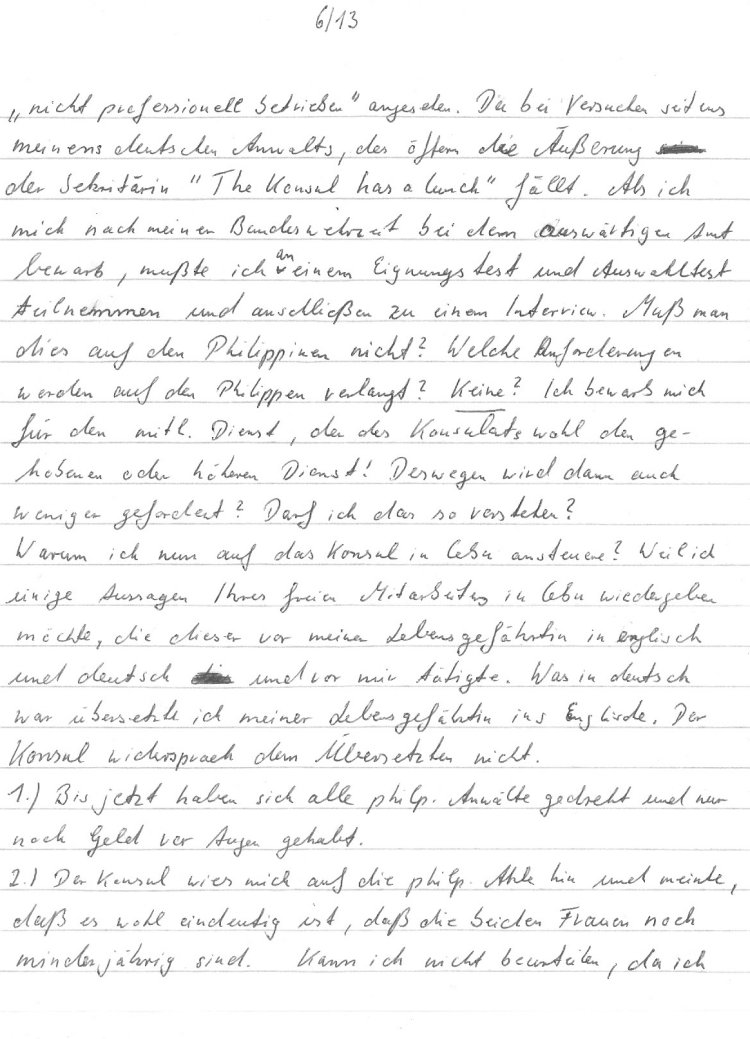 6/13
„nicht professionell betrieben" angesehen. Da bei Versuchen seitens
meinens deutschen Anwalts, des öftern die Äußerung
der Sekritärin "The Konsul has a lunch" fällt. Als ich
mich nach meiner Bundeswehrzeit bei dem Auswärtigen Amt
bewarb, mußte ich an einem Eignungstest und Auswahltest
teilnehmen und anschließen zu einem Interview. Muß man
dies auf den Philippinen nicht? Welche Anforderungen
werden auf den Philippen verlangt? Keine? Ich bewarb mich
für den mitl. Dienst, der des Konsulats wohl den ge-
hobenen oder höheren Dienst! Deswegen wird dann auch
weniger gefordert? Darf ich das so verstehen?
Warum ich nun auf das Konsul in Cebu ansteuere? Weil ich
einige Aussagen Ihres freien Mitarbeiters in Cebu wiedergeben
möchte, die dieser vor meiner Lebensgefährtin in englisch
und deutsch und vor mir tätigte. Was in deutsch
war übersetzte ich meiner Lebensgefährtin ins Englische. Der
Konsul widersprach dem Übersetzten nicht.
1.) Bis jetzt haben sich alle philp. Anwälte gedreht und nur
noch Geld vor Augen gehabt.
2.) Der Konsul wies mich auf die philp. Akte hin und meinte,
daß es wohl eindeutig ist, daß die beiden Frauen noch
minderjährig sind. Kann ich nicht beurteilen, da ich